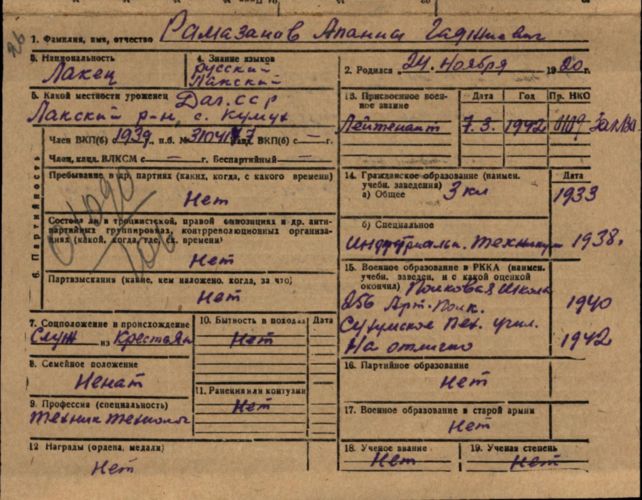 26
1. Фамилия, имя, отчество Рамазанов Апанди Гаджиевич
3. Национальность Лакец
4. Знание языков русский Лакский
2. Родился 24. Ноября 1920 г.
5. Какой местности уроженец Даг.ССР
Лакский р-н, с. Кумух
13. Присвоенное военное звание Дата Год Пр. НКО
Лейтенант 7.3. 1942 0109 ЗакВо
6. Партийность
Член ВКП(б) 1939, п.б. № канд. ВКП(б) с — г.
Член, канд. ВЛКСМ с — г. Беспартийный —
Пребывание в др. партиях (каких, когда, с какого времени)
Нет
Состоял ли в троцкистской, правой оппозициях и др. анти-
партийных группировках, контрреволюционных организа-
циях (какой, когда, где, с к. времени)
Нет
Партвзыскания (какие, кем наложено, когда, за что)
Нет
14. Гражданское образование (наимен. учебн. заведения) Дата
а) Общее 3 кл 1933
б) Специальное
Индустриальн. Техникум 1938.
15. Военное образование в РККА (наимен.
учебн. заведен. и с какой оценкой
окончил) Полковая школа
256 Арт. Полк. 1940
Сухумское Пех. учил.
На отлично 1942
7. Соцположение и происхождение
Служ из Крестьян
10. Бытность в походах Дата
Нет
8. Семейное положение
Ненат
11. Ранения или контузии
Нет
9. Профессия (специальность)
Техник
12 Награды (ордена, медали)
Нет
16. Партийное образование
Нет
17. Военное образование в старой армии
Нет
18. Ученое звание
Нет
19. Ученая степень
Нет